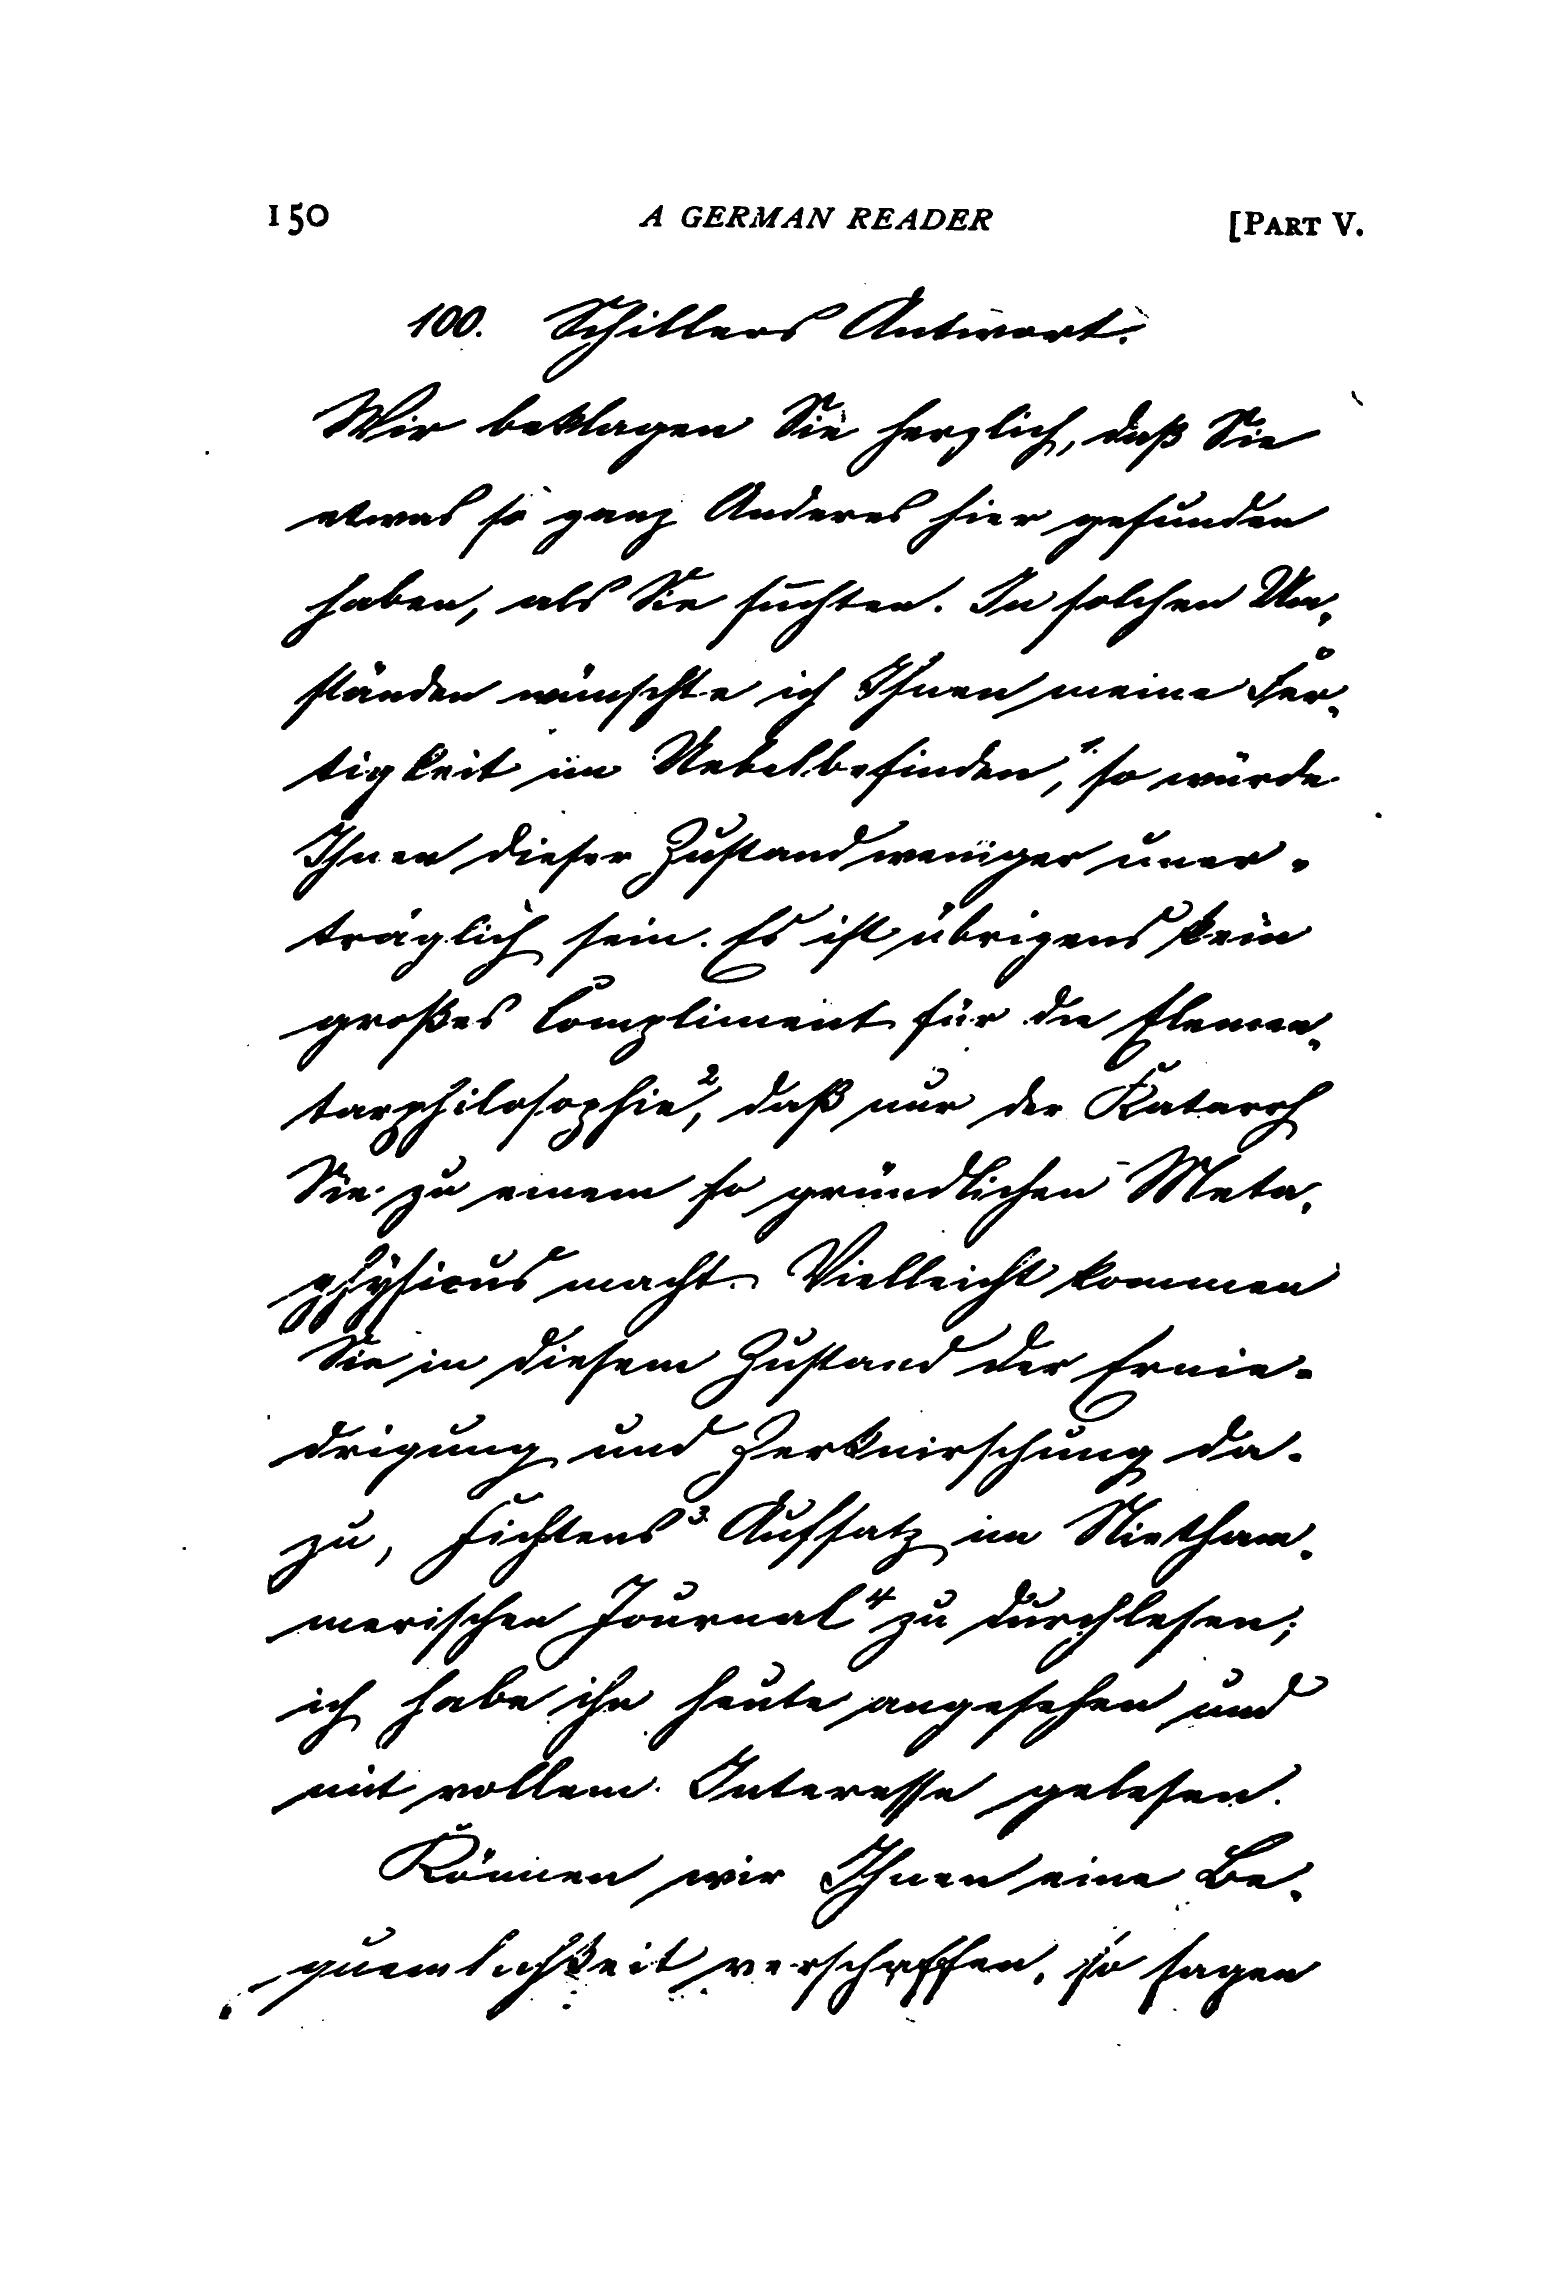 150 A GERMAN READER [PART V.
100. Schillers Antwort.
Wir beklagen Sie herzlich, daß Sie
etwas so ganz Anderes hier gefunden
haben, als Sie suchten. In solchen Um-
ständen wünschte ich Ihnen meine Fer-
tigkeit im Uebelbefinden,¹ so würde
Ihnen dieser Zustand weniger uner-
träglich sein. Es ist übrigens kein
großes Compliment für die Elemen-
tarphilosophie², daß nur der Katarrh
Sie zu einem so gründlichen Meta-
physicus macht. Vielleicht kommen
Sie in diesem Zustand der Ernie-
drigung und Zerknirschung da-
zu, Fichtens³ Aufsatz im Nietham-
merischen Journal⁴ zu durchlesen;
ich habe ihn heute angesehen und
mit vollem Interesse gelesen.
Können wir Ihnen eine Be-
quemlichkeit verschaffen, so sagen